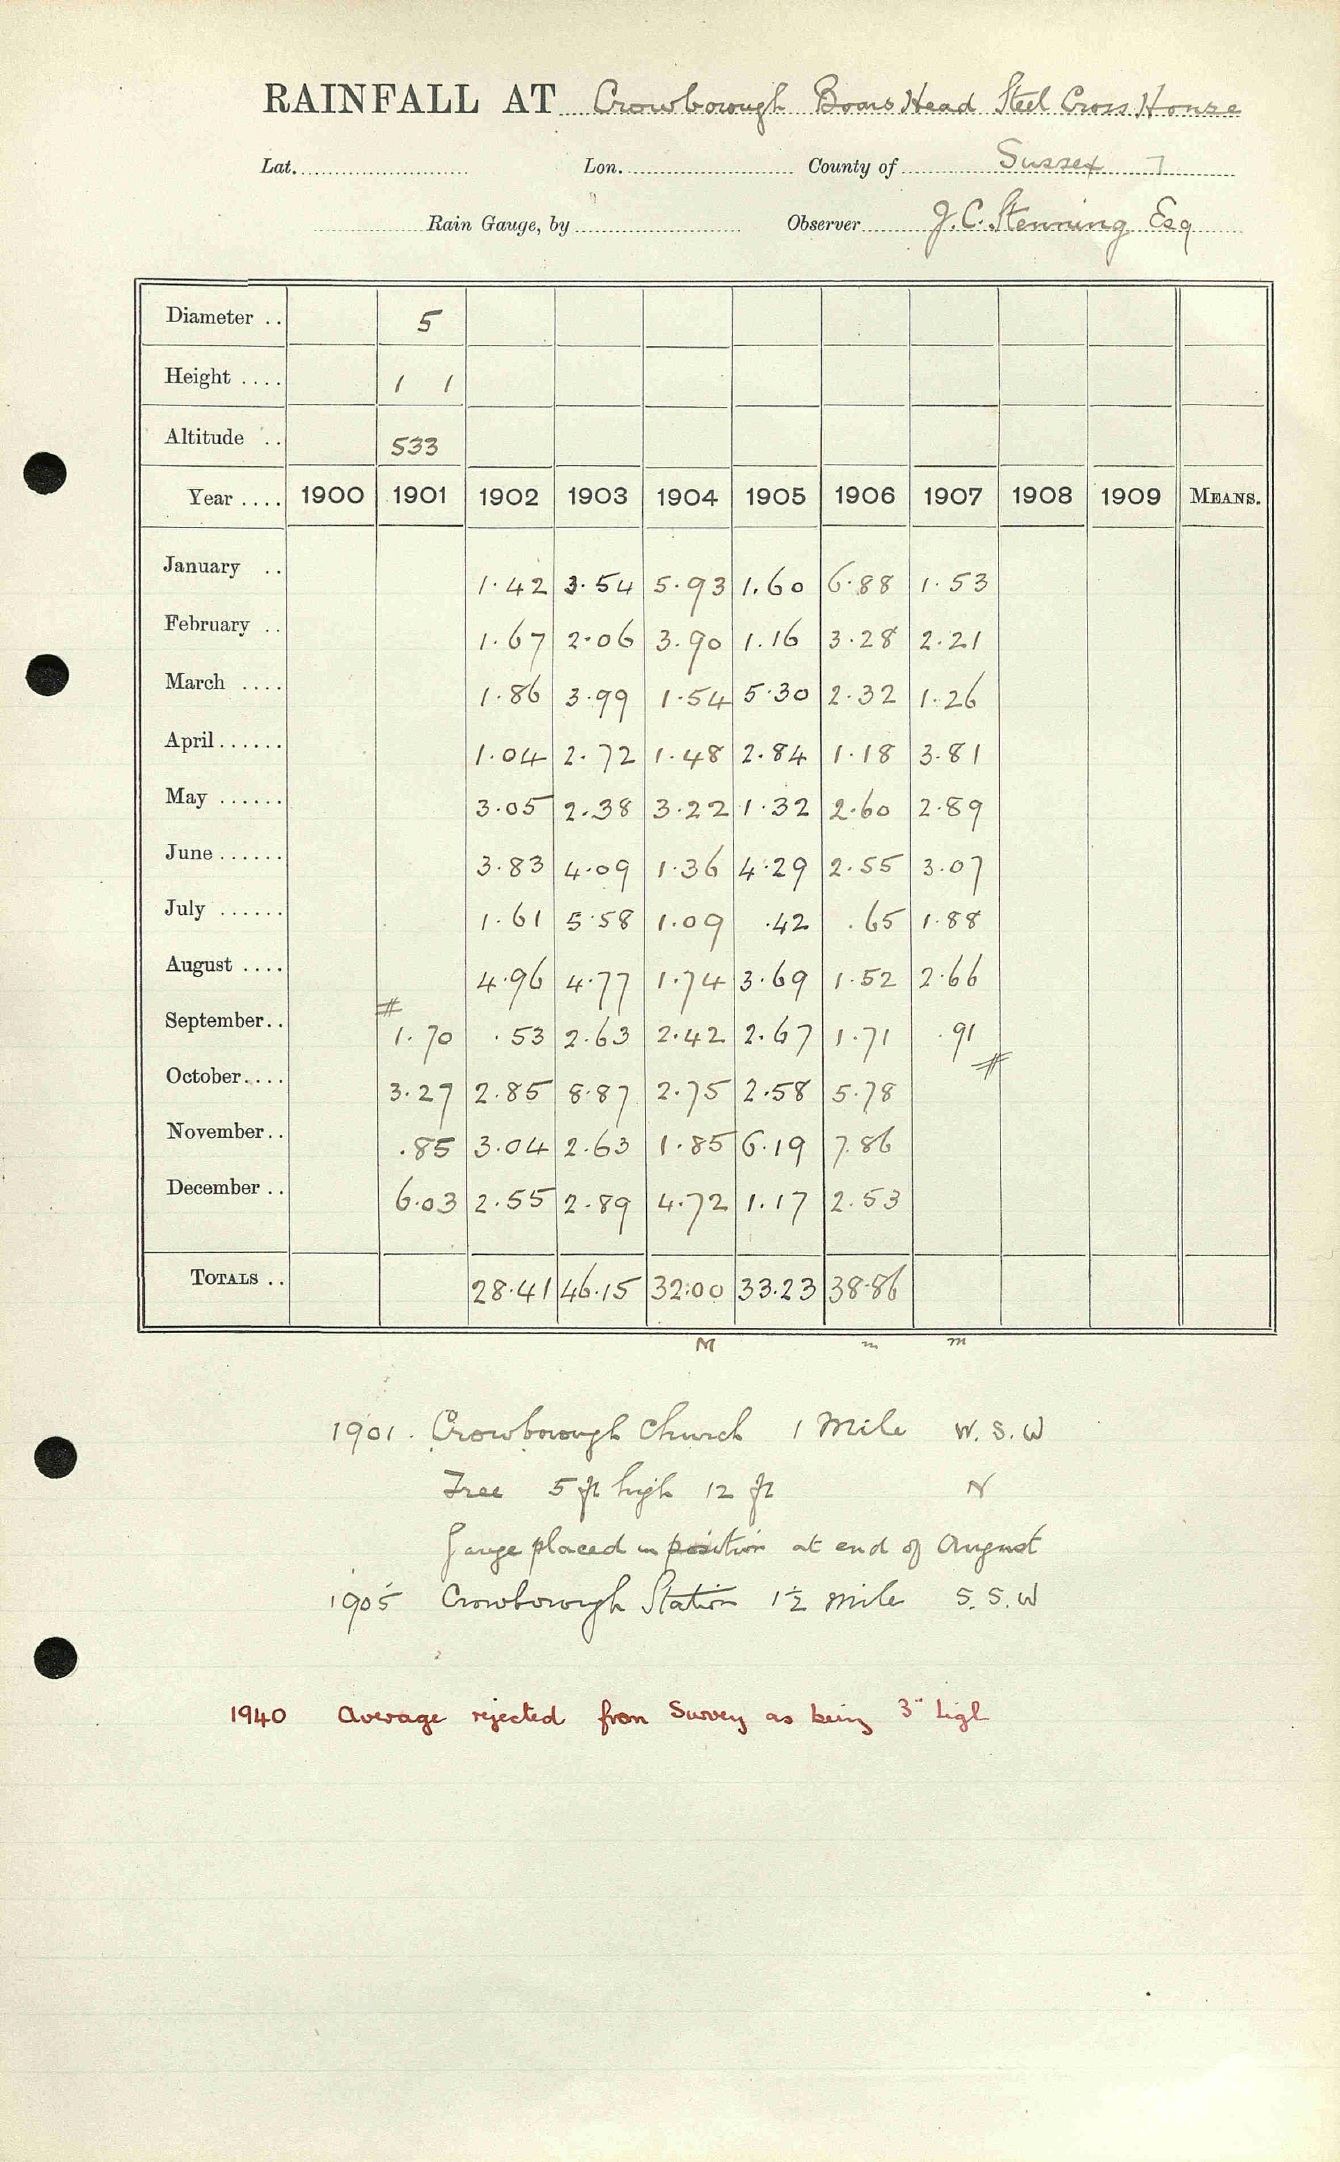 RAINFALL AT Crowborough Boars Head Steel Cross House
Lat. Lon. County of Sussex 7
Rain Gauge, by Observer J.C. Stenning Esq
Diameter .. 5
Height .... 1 1
Altitude .. 533
Year .... 1900 1901 1902 1903 1904 1905 1906 1907 1908 1909 MEANS.
January .. 1.42 3.54 5.93 1.60 6.88 1.53
February .. 1.67 2.06 3.90 1.16 3.28 2.21
March .... 1.86 3.99 1.54 5.30 2.32 1.26
April ...... 1.04 2.72 1.48 2.84 1.18 3.81
May ...... 3.05 2.38 3.22 1.32 2.60 2.89
June ...... 3.83 4.09 1.36 4.29 2.55 3.07
July ...... 1.61 5.58 1.09 .42 .65 1.88
August .... 4.96 4.77 1.74 3.69 1.52 2.66
September.. # 1.70 .53 2.63 2.42 2.67 1.71 .91
October.... 3.27 2.85 8.87 2.75 2.58 5.78 #
November.. .85 3.04 2.63 1.85 6.19 7.86
December .. 6.03 2.55 2.89 4.72 1.17 2.53
TOTALS .. 28.41 46.15 32.00 33.23 38.86
M m m
1901. Crowborough Church 1 Mile W.S.W
Tree 5 ft high 12 ft N
Gauge placed in position at end of August
1905 Crowborough Station 1½ mile S.S.W
1940 Average rejected from Survey as being 3" high